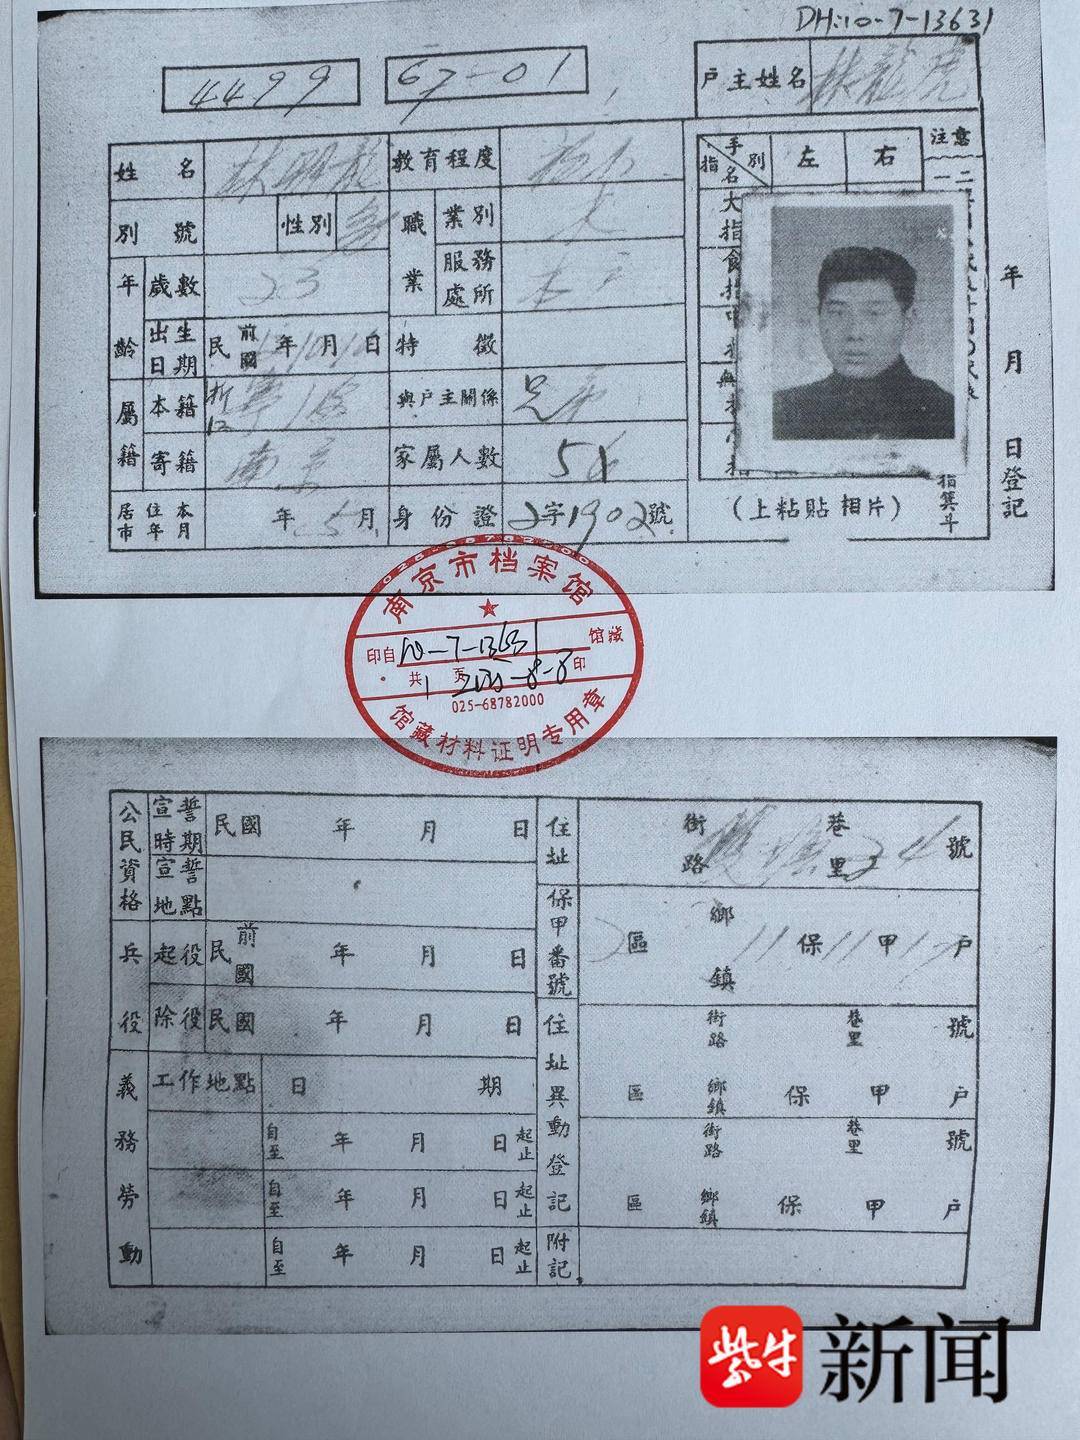 DH:10-7-13631
4499 67-01 户主姓名 林龍虎
姓名 林明龍 教育程度
別號 性別 男 職業 業別
年齡 歲數 23 服務處所
出生日期 民國前 年10月10日 特徵
屬籍 本籍 浙江寧波 與户主關係 兄弟
寄籍 南京 家屬人數 5
居住本市年月 年5月 身份證 2字1902號
手別 指名 左 右 注意
大指
食指
(上粘貼相片)
指箕斗
年月日登記
南京市档案馆
印自10-7-13631馆藏
共1页 2025-8-8印
025-68782000
馆藏材料证明专用章
公民資格 宣誓時期 民國 年 月 日
宣誓地點
兵役 起役 民國前 年 月 日
除役 民國 年 月 日
義務勞動 工作地點 日期
自至 年 月 日 起止
自至 年 月 日 起止
自至 年 月 日 起止
住址 街路 巷里 24號
保甲番號 區 鄉鎮 11保11甲 户
住址異動登記 街路 巷里 號
區 鄉鎮 保 甲 户
街路 巷里 號
區 鄉鎮 保 甲 户
附記
紫牛新闻